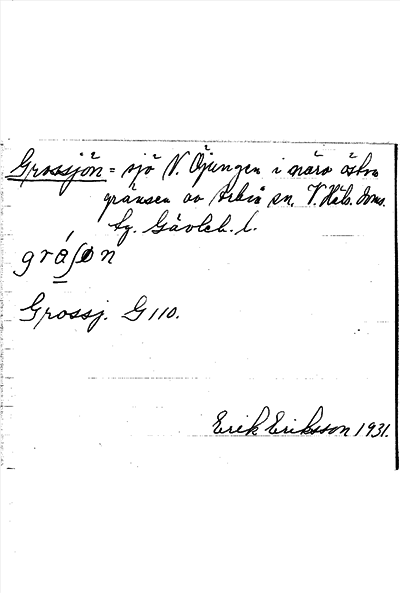 Grossjön = sjö V. Öjungen i nära östra
gränsen av Arbrå sn. V. Häls. doms.
sg. Gävleb. l.
gráʃøn
Grossj. G 110.
Erik Eriksson 1931.